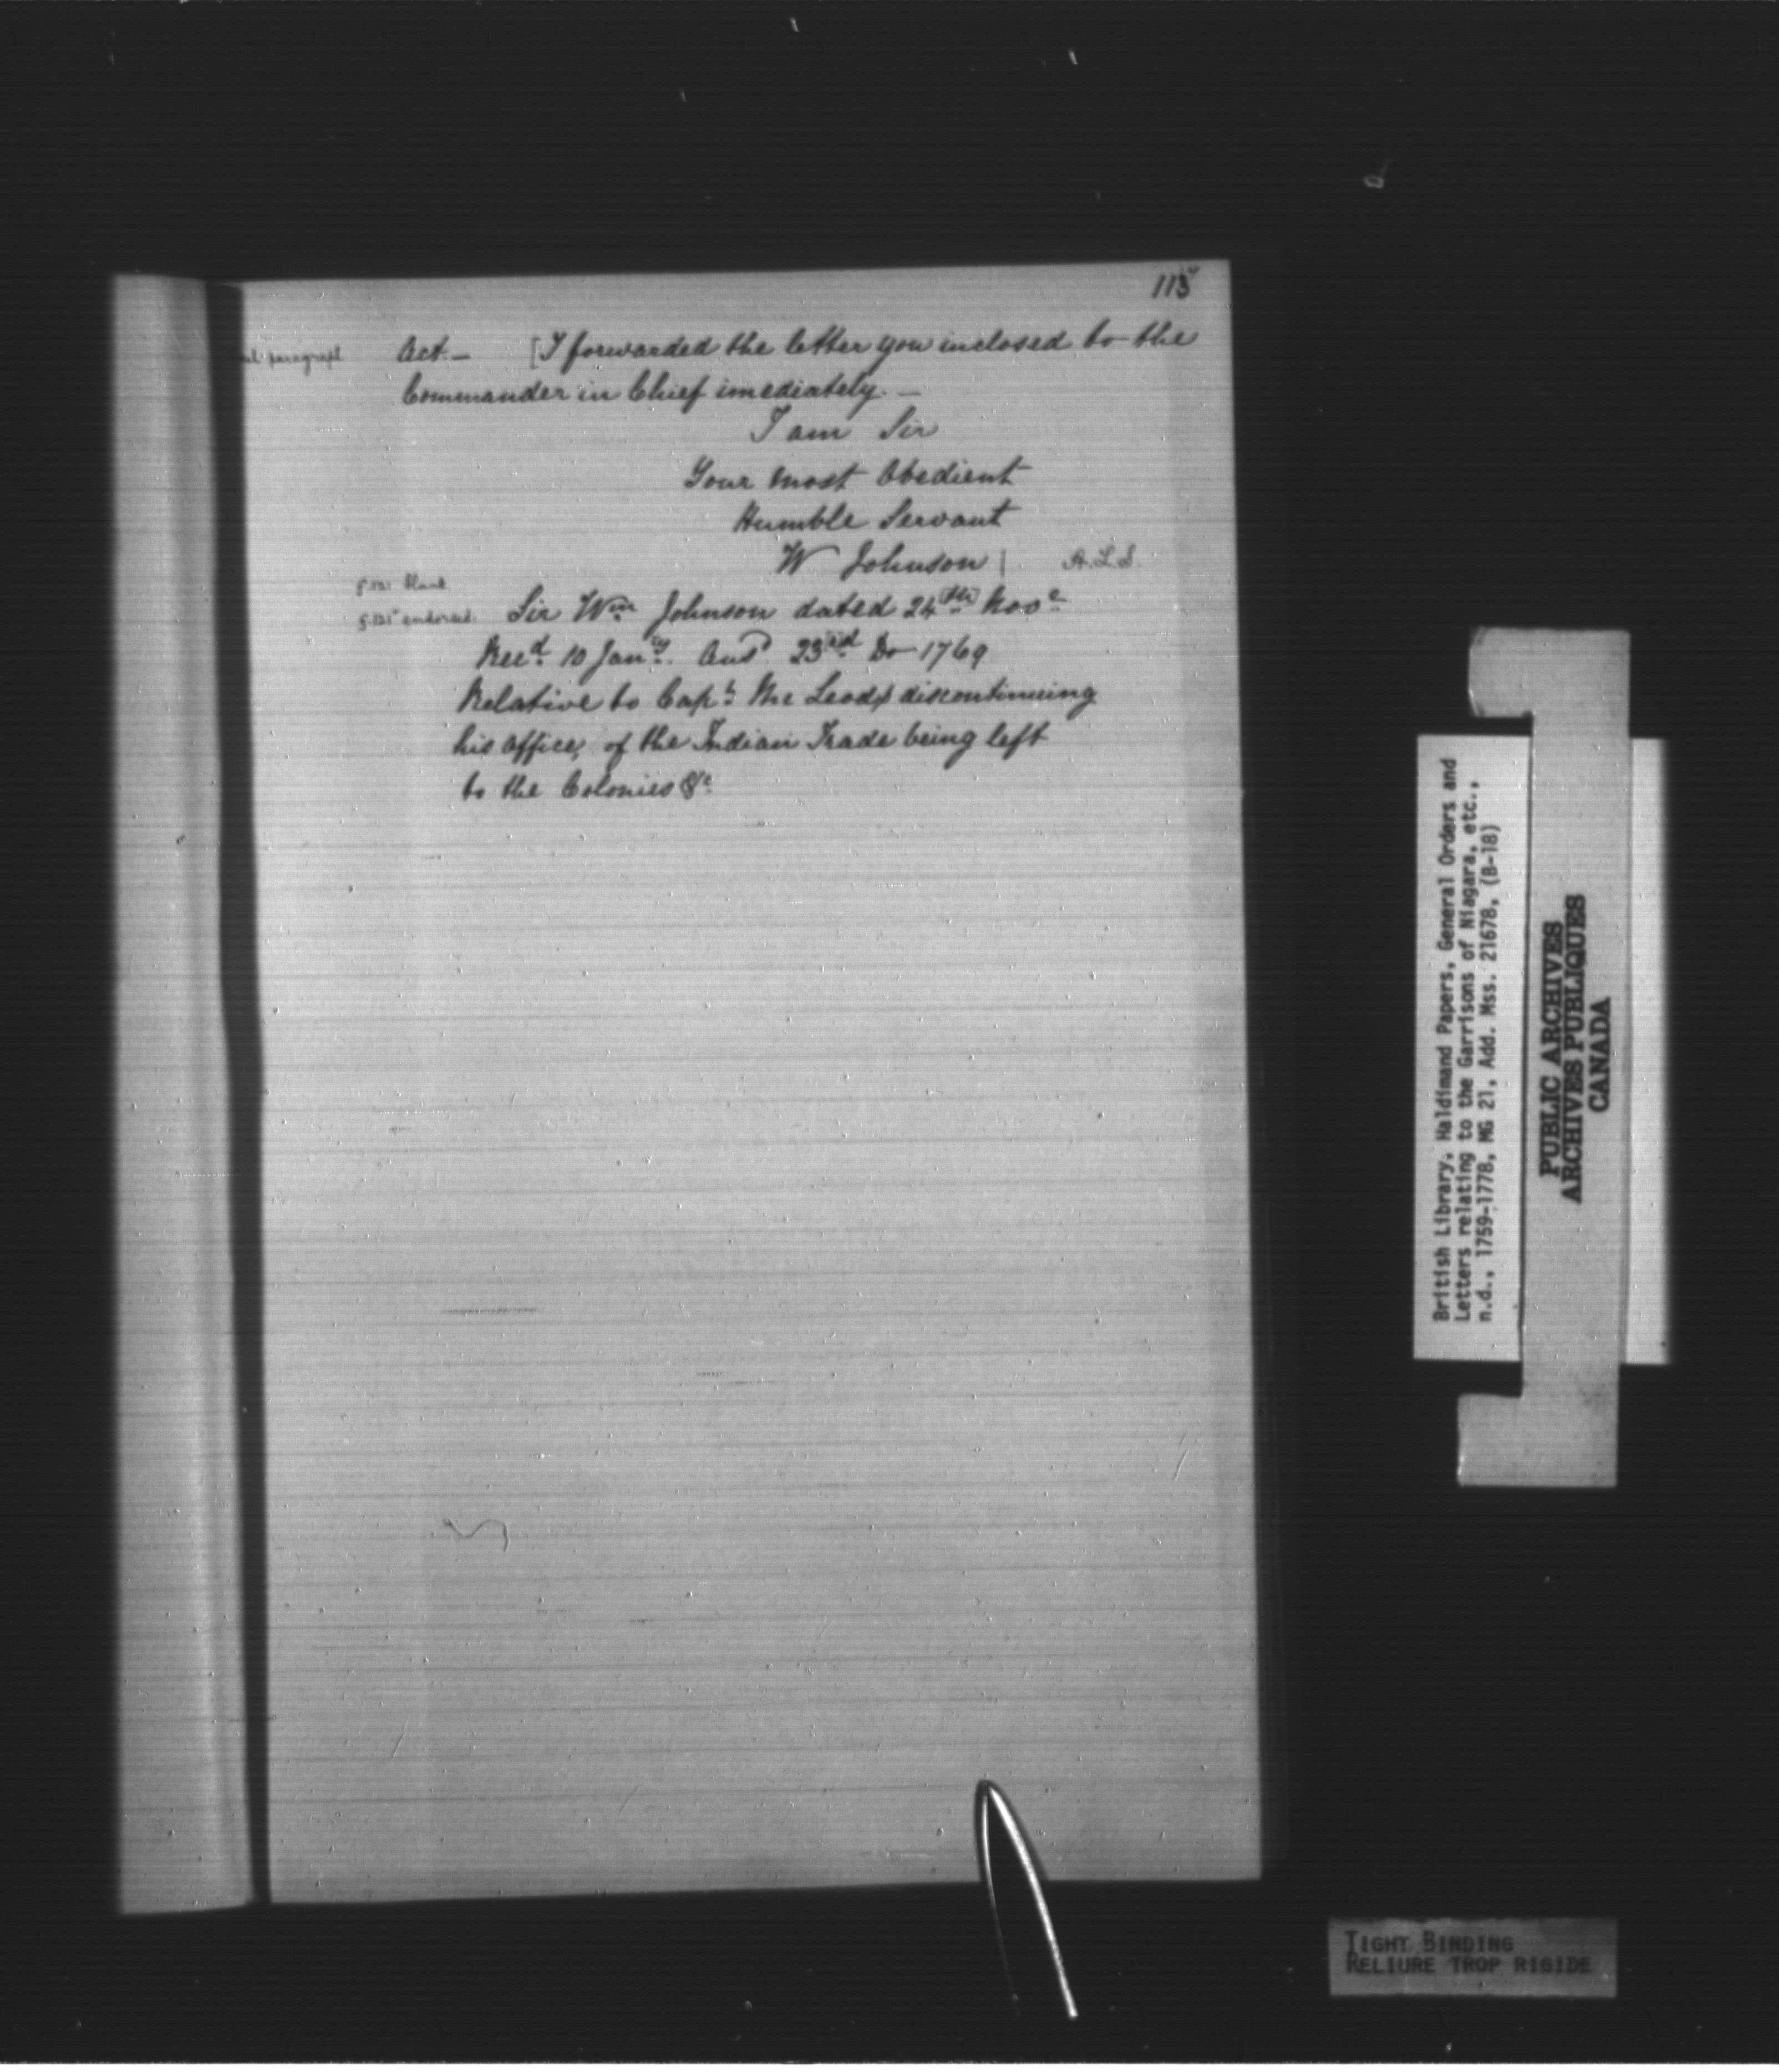 113
paragraph
Act. — [I forwarded the letter you inclosed to the
Commander in Chief imediately. —
I am Sir
Your most Obedient
Humble Servant
W Johnson | A.L.S.
blank
endorsed. Sir Wm Johnson dated 24th Nov
Recd 10 Jany. Ansd 23rd Do 1769
Relative to Capt Mc Leods discontinuing
his office, of the Indian Trade being left
to the Colonies &c
British Library, Haldimand Papers, General Orders and
Letters relating to the Garrisons of Niagara, etc.,
n.d., 1759-1778, MG 21, Add. Mss. 21678, (B-18)
PUBLIC ARCHIVES
ARCHIVES PUBLIQUES
CANADA
TIGHT BINDING
RELIURE TROP RIGIDE